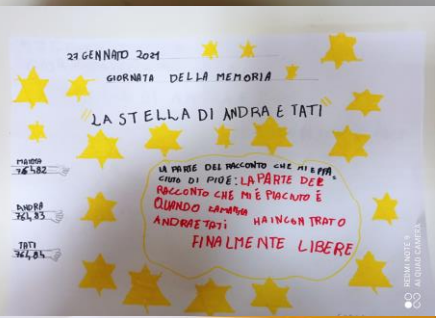 27 GENNAIO 2021
GIORNATA DELLA MEMORIA
"LA STELLA DI ANDRA E TATI"
MAMMA
76482
ANDRA
76483
TATI
76484
LA PARTE DEL RACCONTO CHE MI È PIA
CIUTO DI PIÙ È: LA PARTE DEL
RACCONTO CHE MI È PIACIUTO È
QUANDO LA MAMMA
ANDRA E TATI HA INCONTRATO
FINALMENTE LIBERE
REDMI NOTE 9
AI QUAD CAMERA